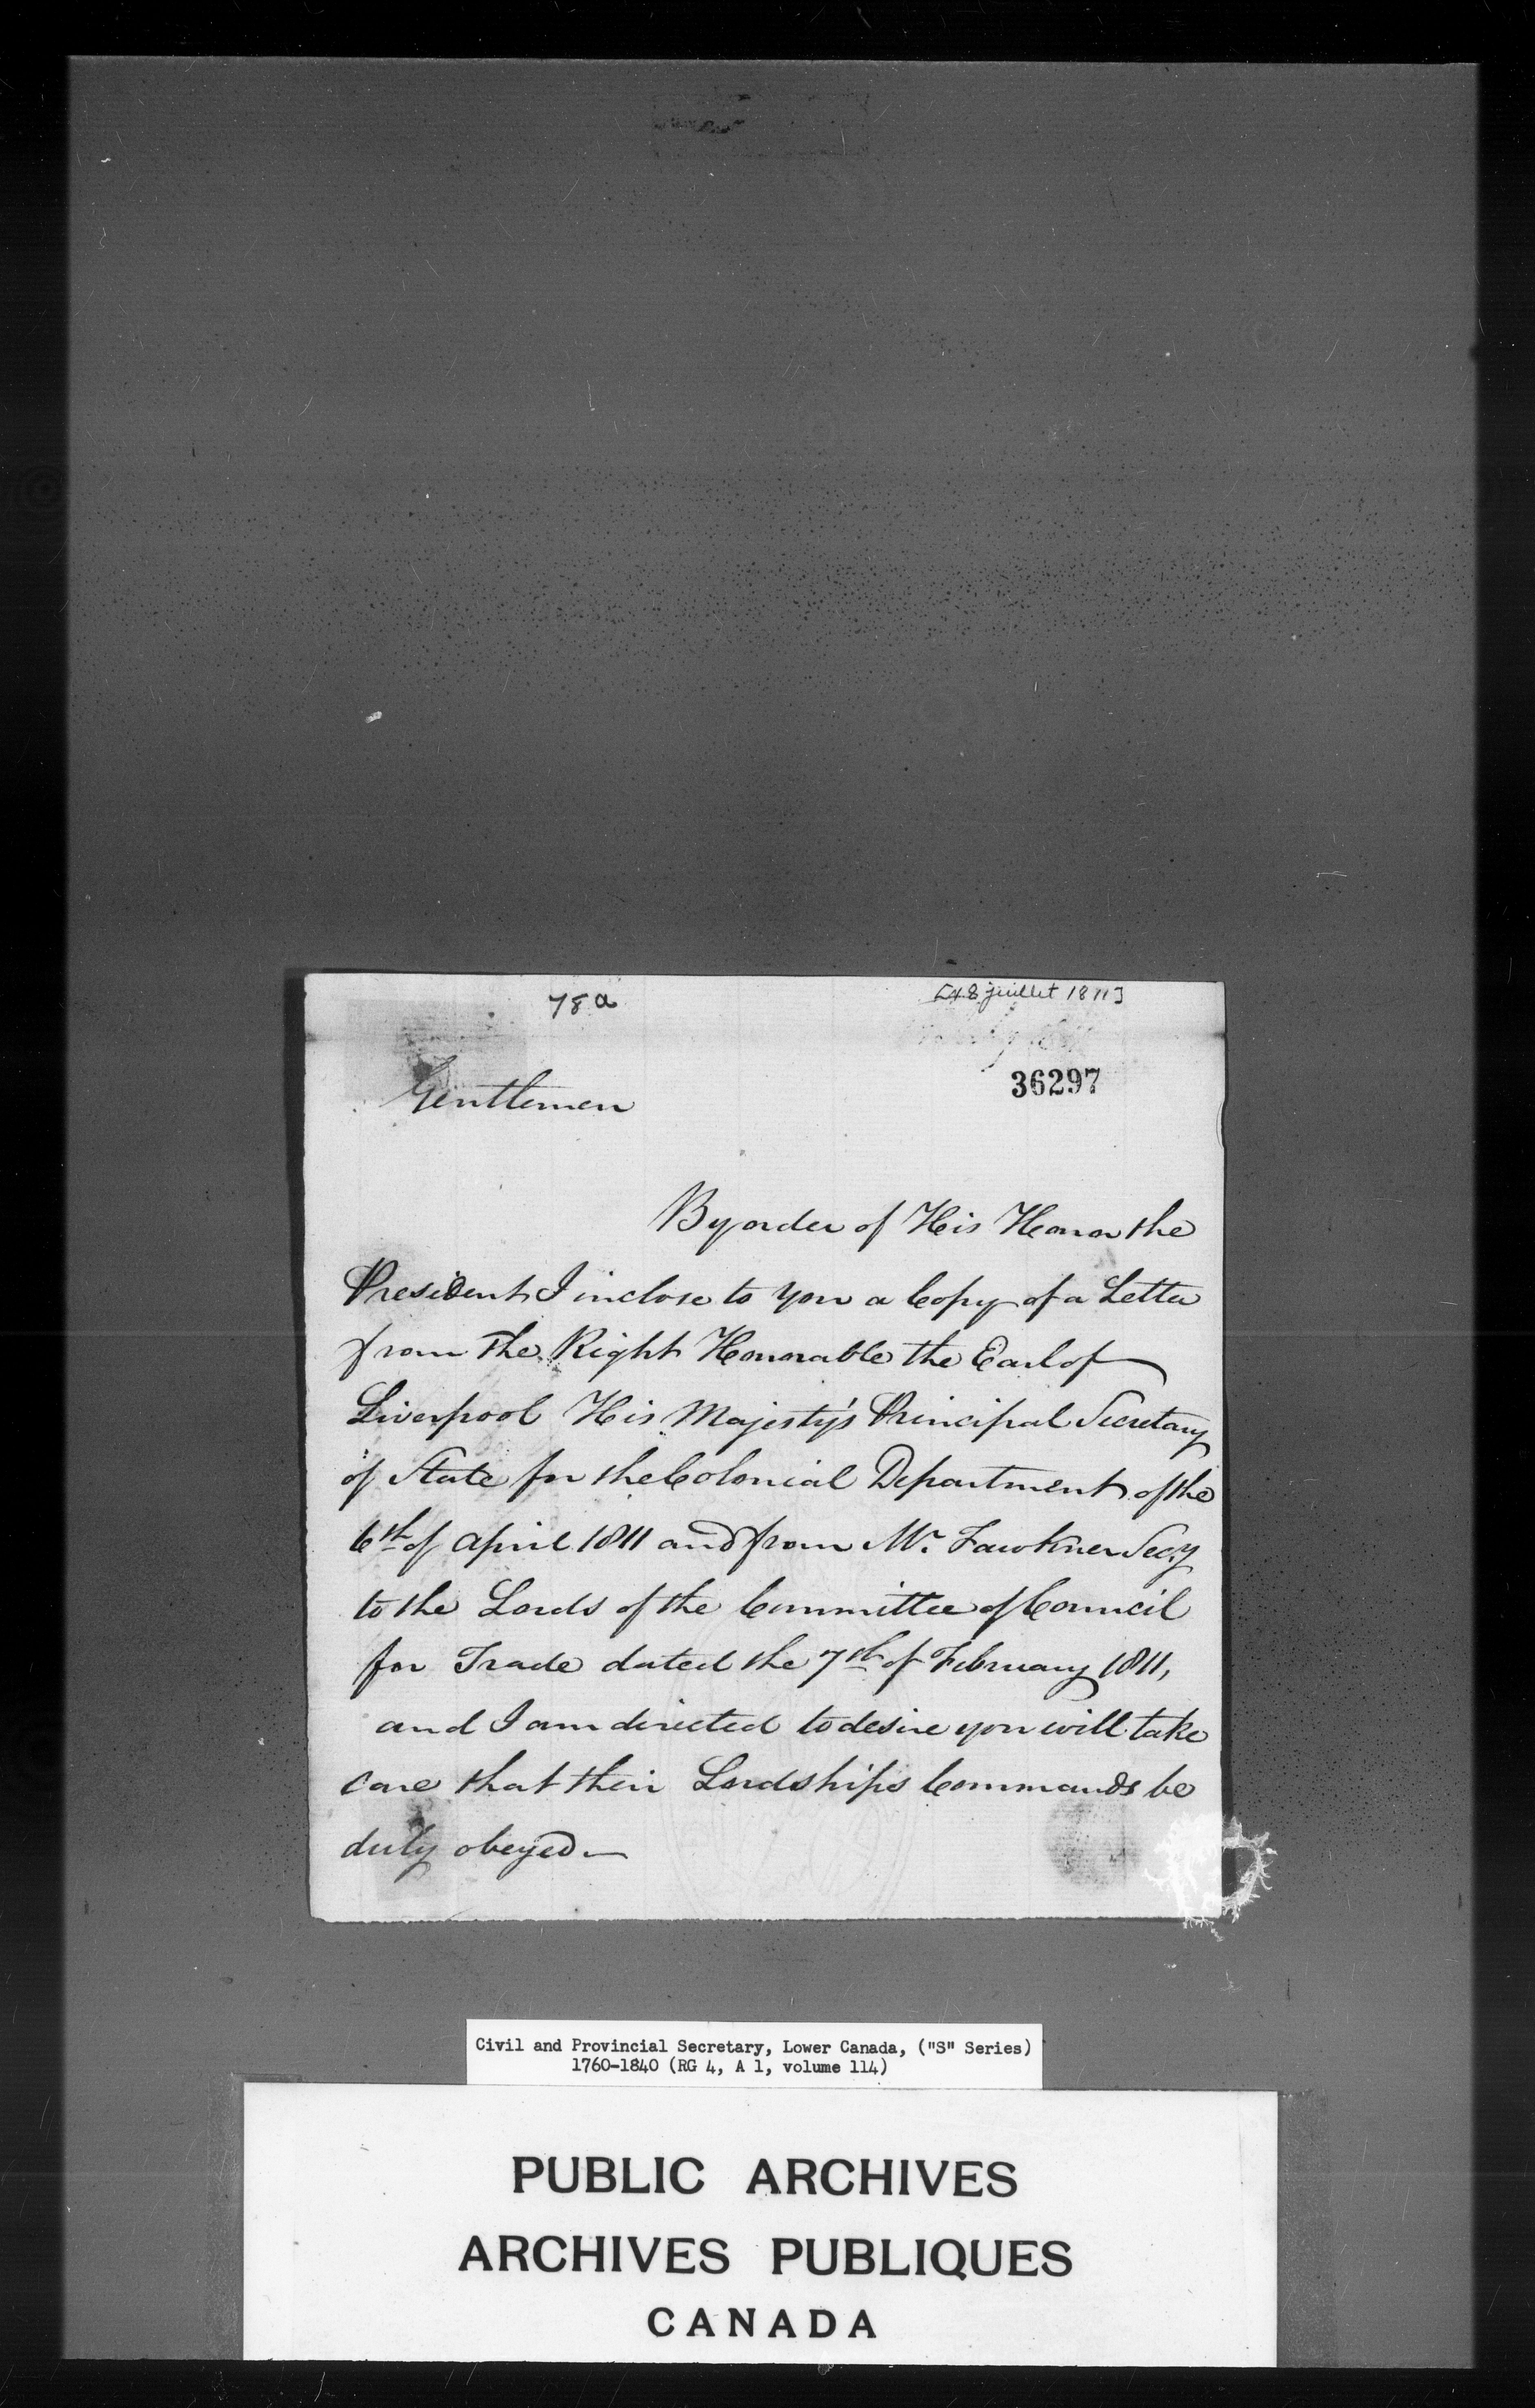 78a
juillet 1811]
36297
Gentlemen
By order of His Honor the
President I inclose to you a Copy of a Letter
from the Right Honorable the Earl of
Liverpool His Majesty's Principal Secretary
of State for the Colonial Department of the
6th of April 1811 and from Mr. Fawkner Secy
to the Lords of the Committee of Council
for Trade dated the 7th of February 1811,
and I am directed to desire you will take
care that their Lordships Commands be
duly obeyed—
Civil and Provincial Secretary, Lower Canada, ("S" Series)
1760-1840 (RG 4, A 1, volume 114)
PUBLIC ARCHIVES
ARCHIVES PUBLIQUES
CANADA